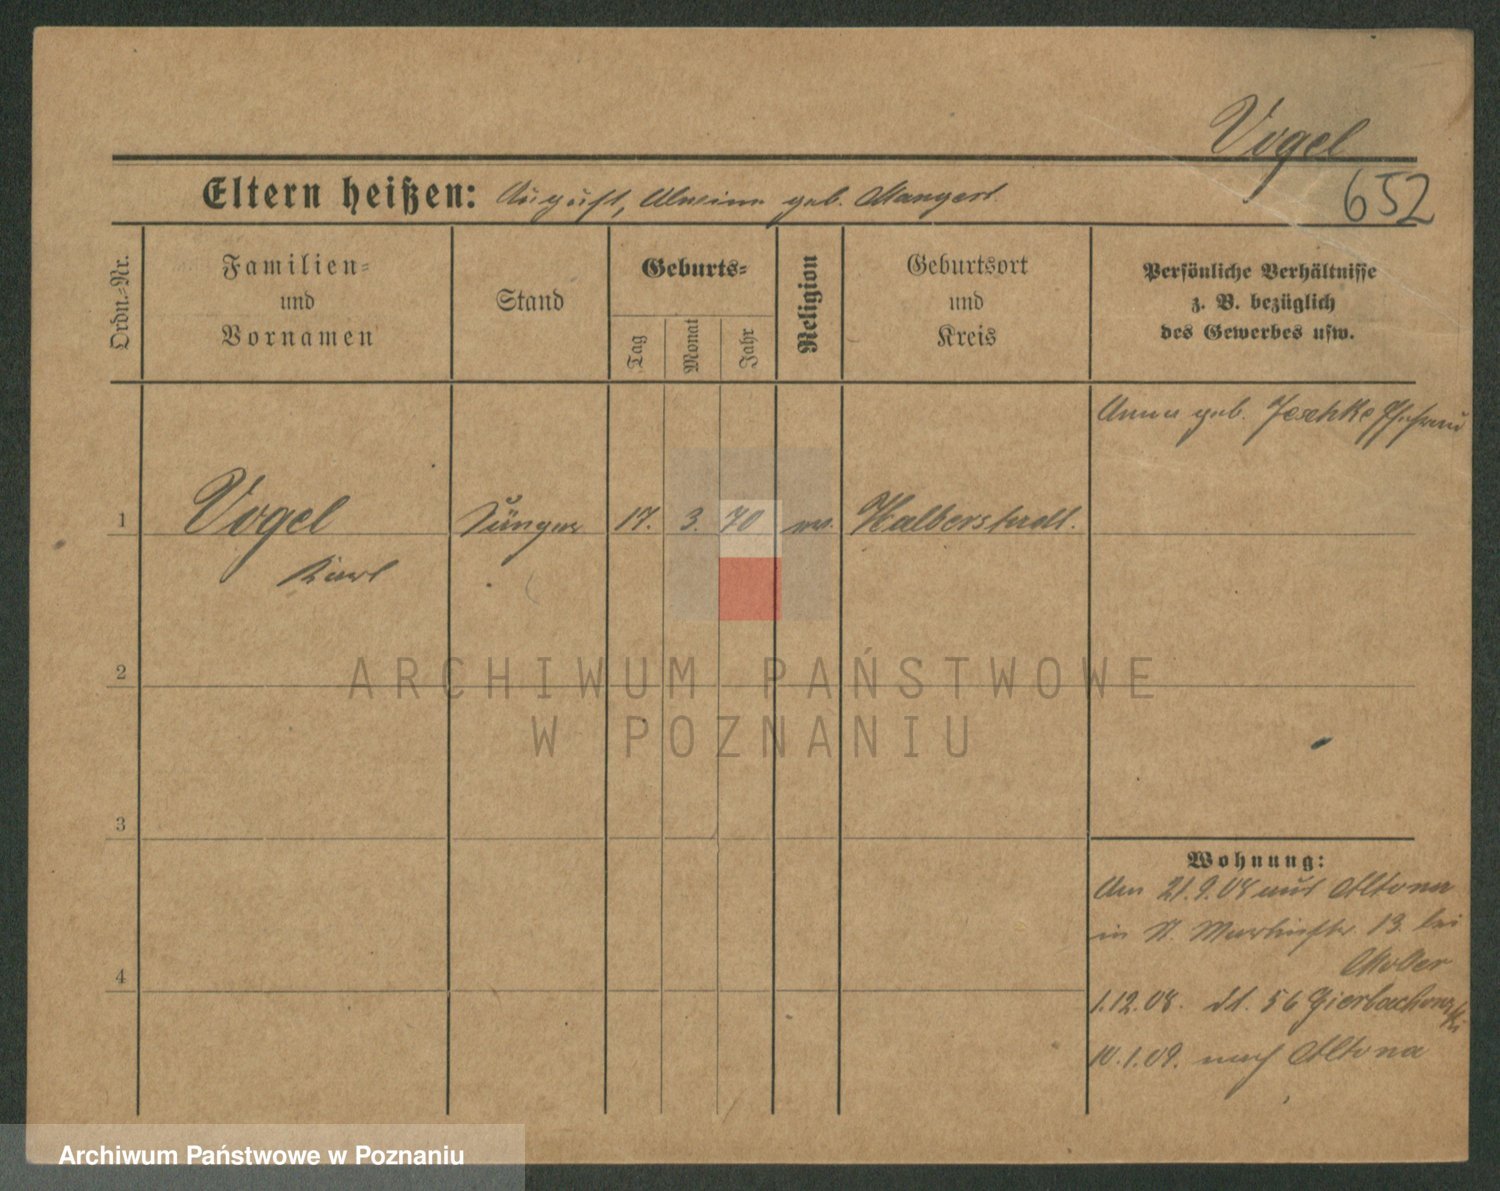 Vogel
652
Eltern heißen: August, Alwine geb. Mangert
Ordn.-Nr.
Familien-
und
Vornamen
Stand
Geburts-
Tag
Monat
Jahr
Religion
Geburtsort
und
Kreis
Persönliche Verhältnisse
z. B. bezüglich
des Gewerbes usw.
Anna geb. Jeschke Ehefrau
1 Vogel Sänger 17. 3. 70 ev. Halberstadt.
Karl
2
ARCHIWUM PAŃSTWOWE
W POZNANIU
3
Wohnung:
Am 21.9.08 aus Altona
in St. Martinstr. 13. bei
4
1.12.08. 56
10.1.09. nach Altona
Archiwum Państwowe w Poznaniu